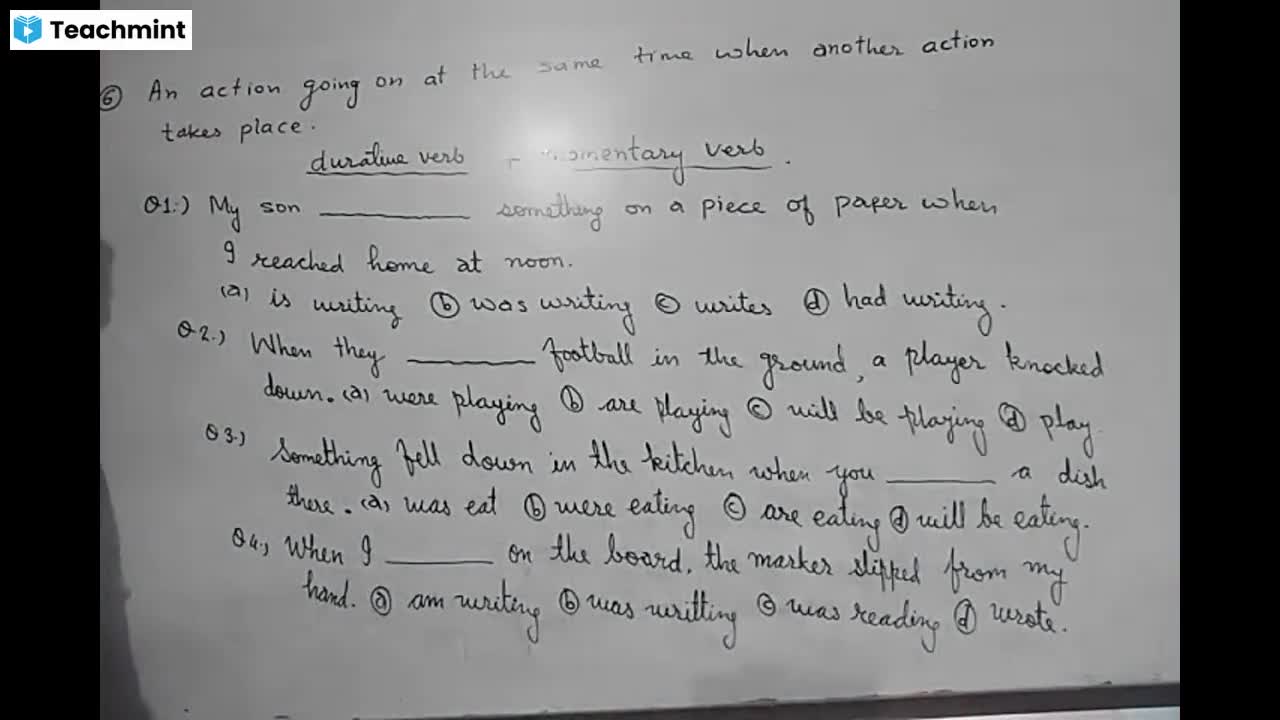 Teachmint
⑥ An action going on at the same time when another action
takes place.
durative verb + momentary verb.
Q1.) My son ________ something on a piece of paper when
I reached home at noon.
(a) is writing ⓑ was writing ⓒ writes ⓓ had writing.
Q2.) When they ________ football in the ground, a player knocked
down. (a) were playing ⓑ are playing ⓒ will be playing ⓓ play.
Q3.) Something fell down in the kitchen when you ________ a dish
there. (a) was eat ⓑ were eating ⓒ are eating ⓓ will be eating.
Q4.) When I ________ on the board, the marker slipped from my
hand. ⓐ am writing ⓑ was writting ⓒ was reading ⓓ wrote.